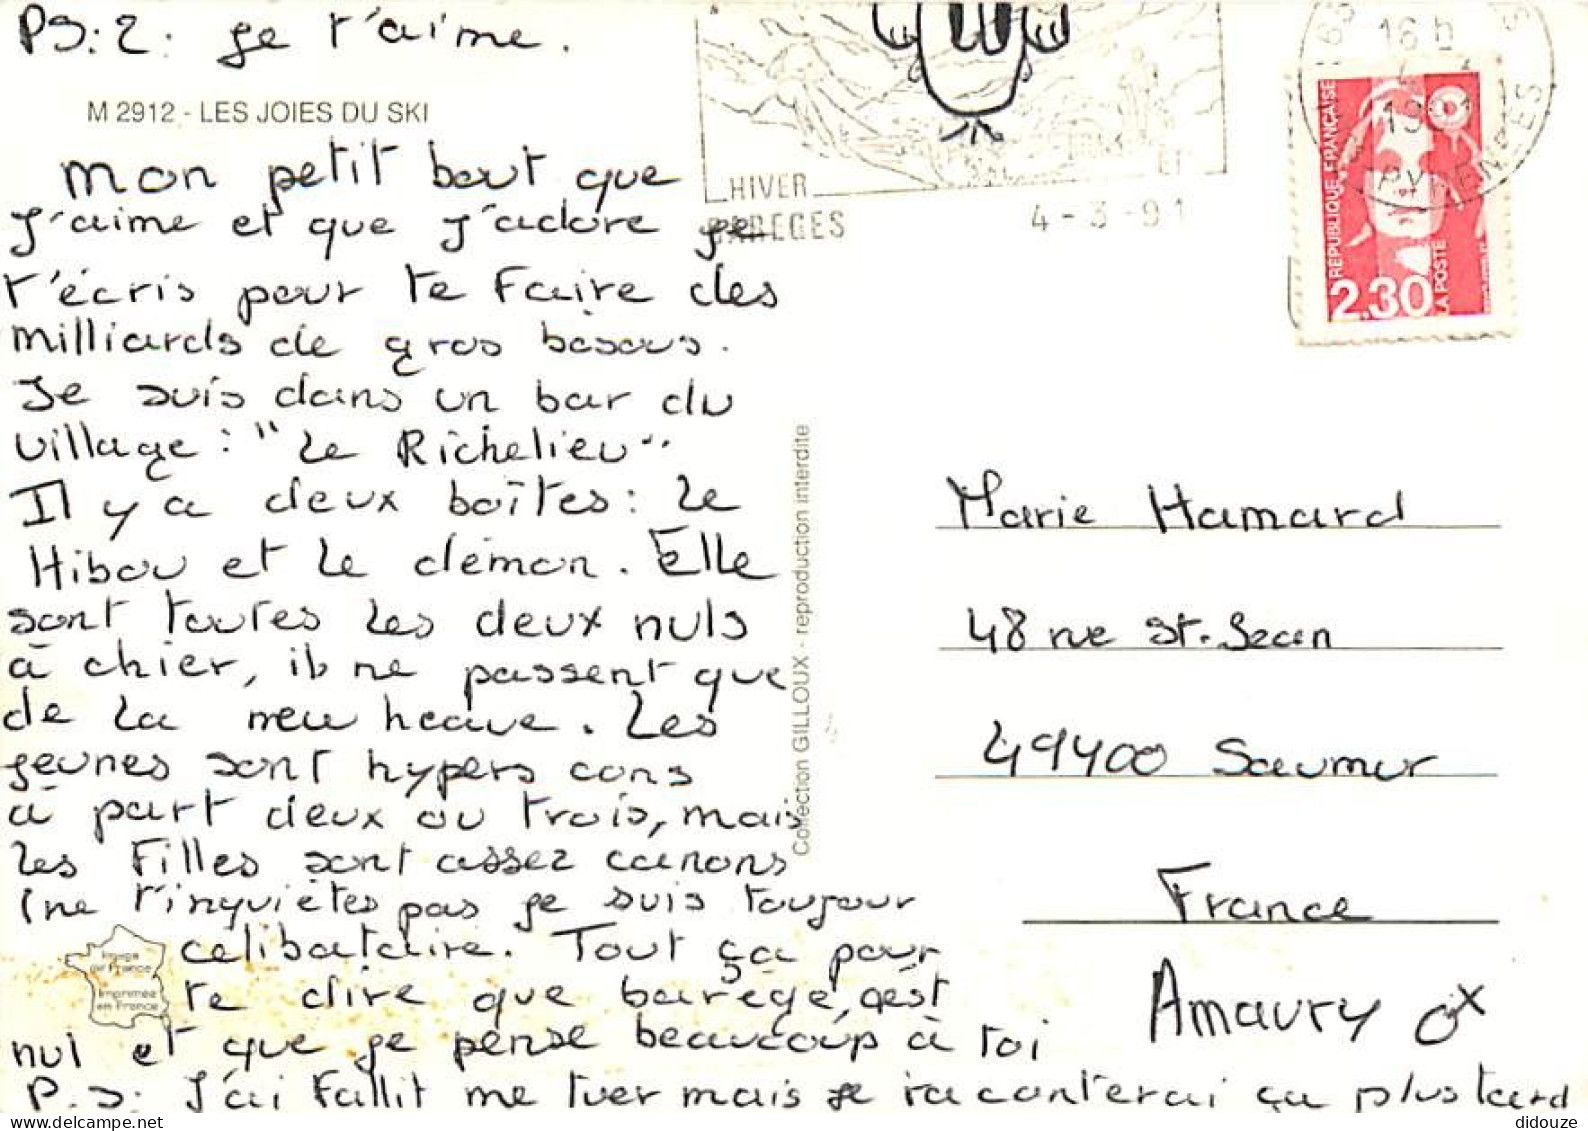 PS: 2: je t'aime.
M 2912 - LES JOIES DU SKI
mon petit bout que
J'aime et que j'adore je
t'écris pour te Faire des
milliards de gros bisous.
Je suis dans un bar du
village: "Le Richelieu"
Il y a deux boîtes: Le
Hibou et le démon. Elle
sont toutes les deux nuls
à chier, ils ne passent que
de la new heave. Les
jeunes sont hypers cons
à part deux ou trois, mais
les Filles sont assez canons
(ne t'inquiètes pas je suis toujour
célibataire. Tout ça pour
te dire que barège, çest
nul et que je pense beaucoups à toi
P.S: J'ai Fallit me tuer mais je raconterai ça plus tard
Image
de France
Imprimée
en France
Collection GILLOUX - reproduction interdite
HIVER
ET
BAREGES
4-3-91
16 h
1991
PYRENEES
RÉPUBLIQUE FRANÇAISE
2,30
LA POSTE
Marie Hamard
48 rue St-Jean
49400 Saumur
France
Amaury
didouze